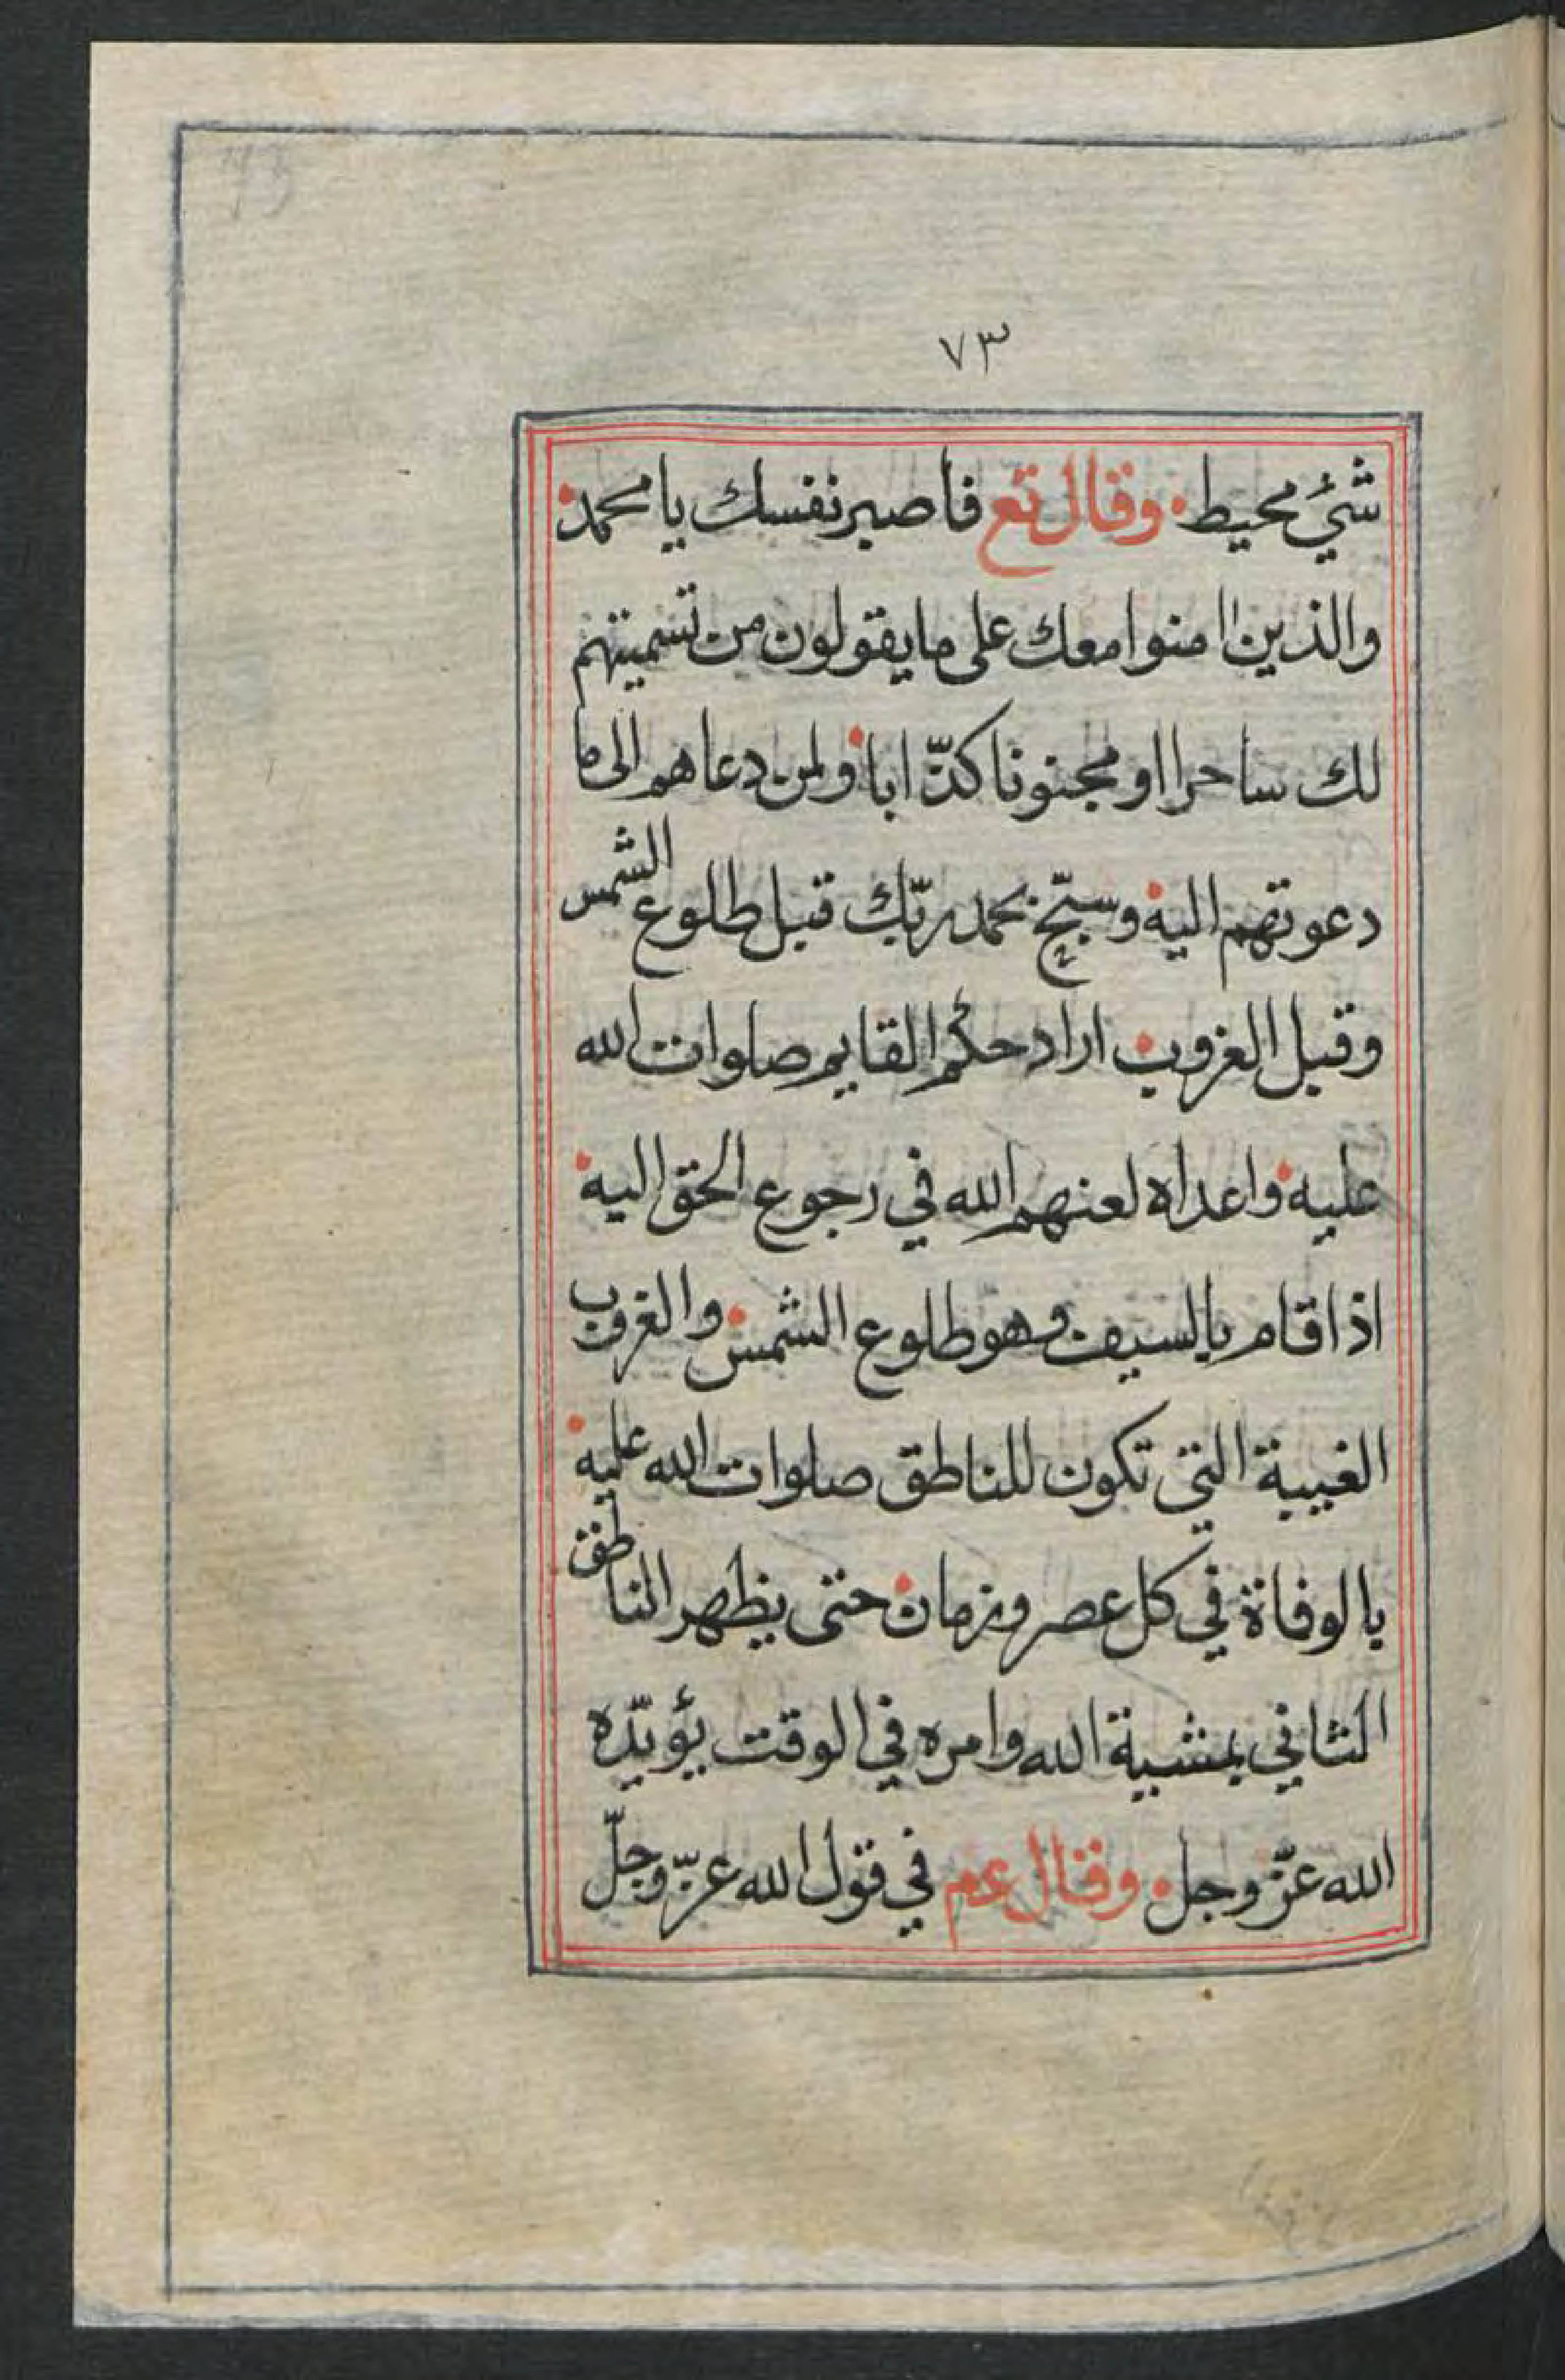 ٧٣
شئ محيط وقال تع فاصبر نفسك يا محمد
والذين امنوا معك على ما يقولون من تسميتهم
لك ساحرا او مجنونا كذابا ولمن دعاهم الى ما
دعوتهم اليه وسبّح بحمد ربّك قبل طلوع الشمس
وقبل الغروب اراد حكم القايم صلوات الله
عليه واعداه لعنهم الله في رجوع الحق اليه
اذا قام بالسيف وهو طلوع الشمس والغروب
الغيبة التي تكون للناطق صلوات الله عليه
بالوفاة في كل عصر وزمان حتى يظهر الناطق
الثاني بمشية الله وامره في الوقت يؤيّده
الله عزّ وجل وقال عم في قول الله عزّ وجلّ